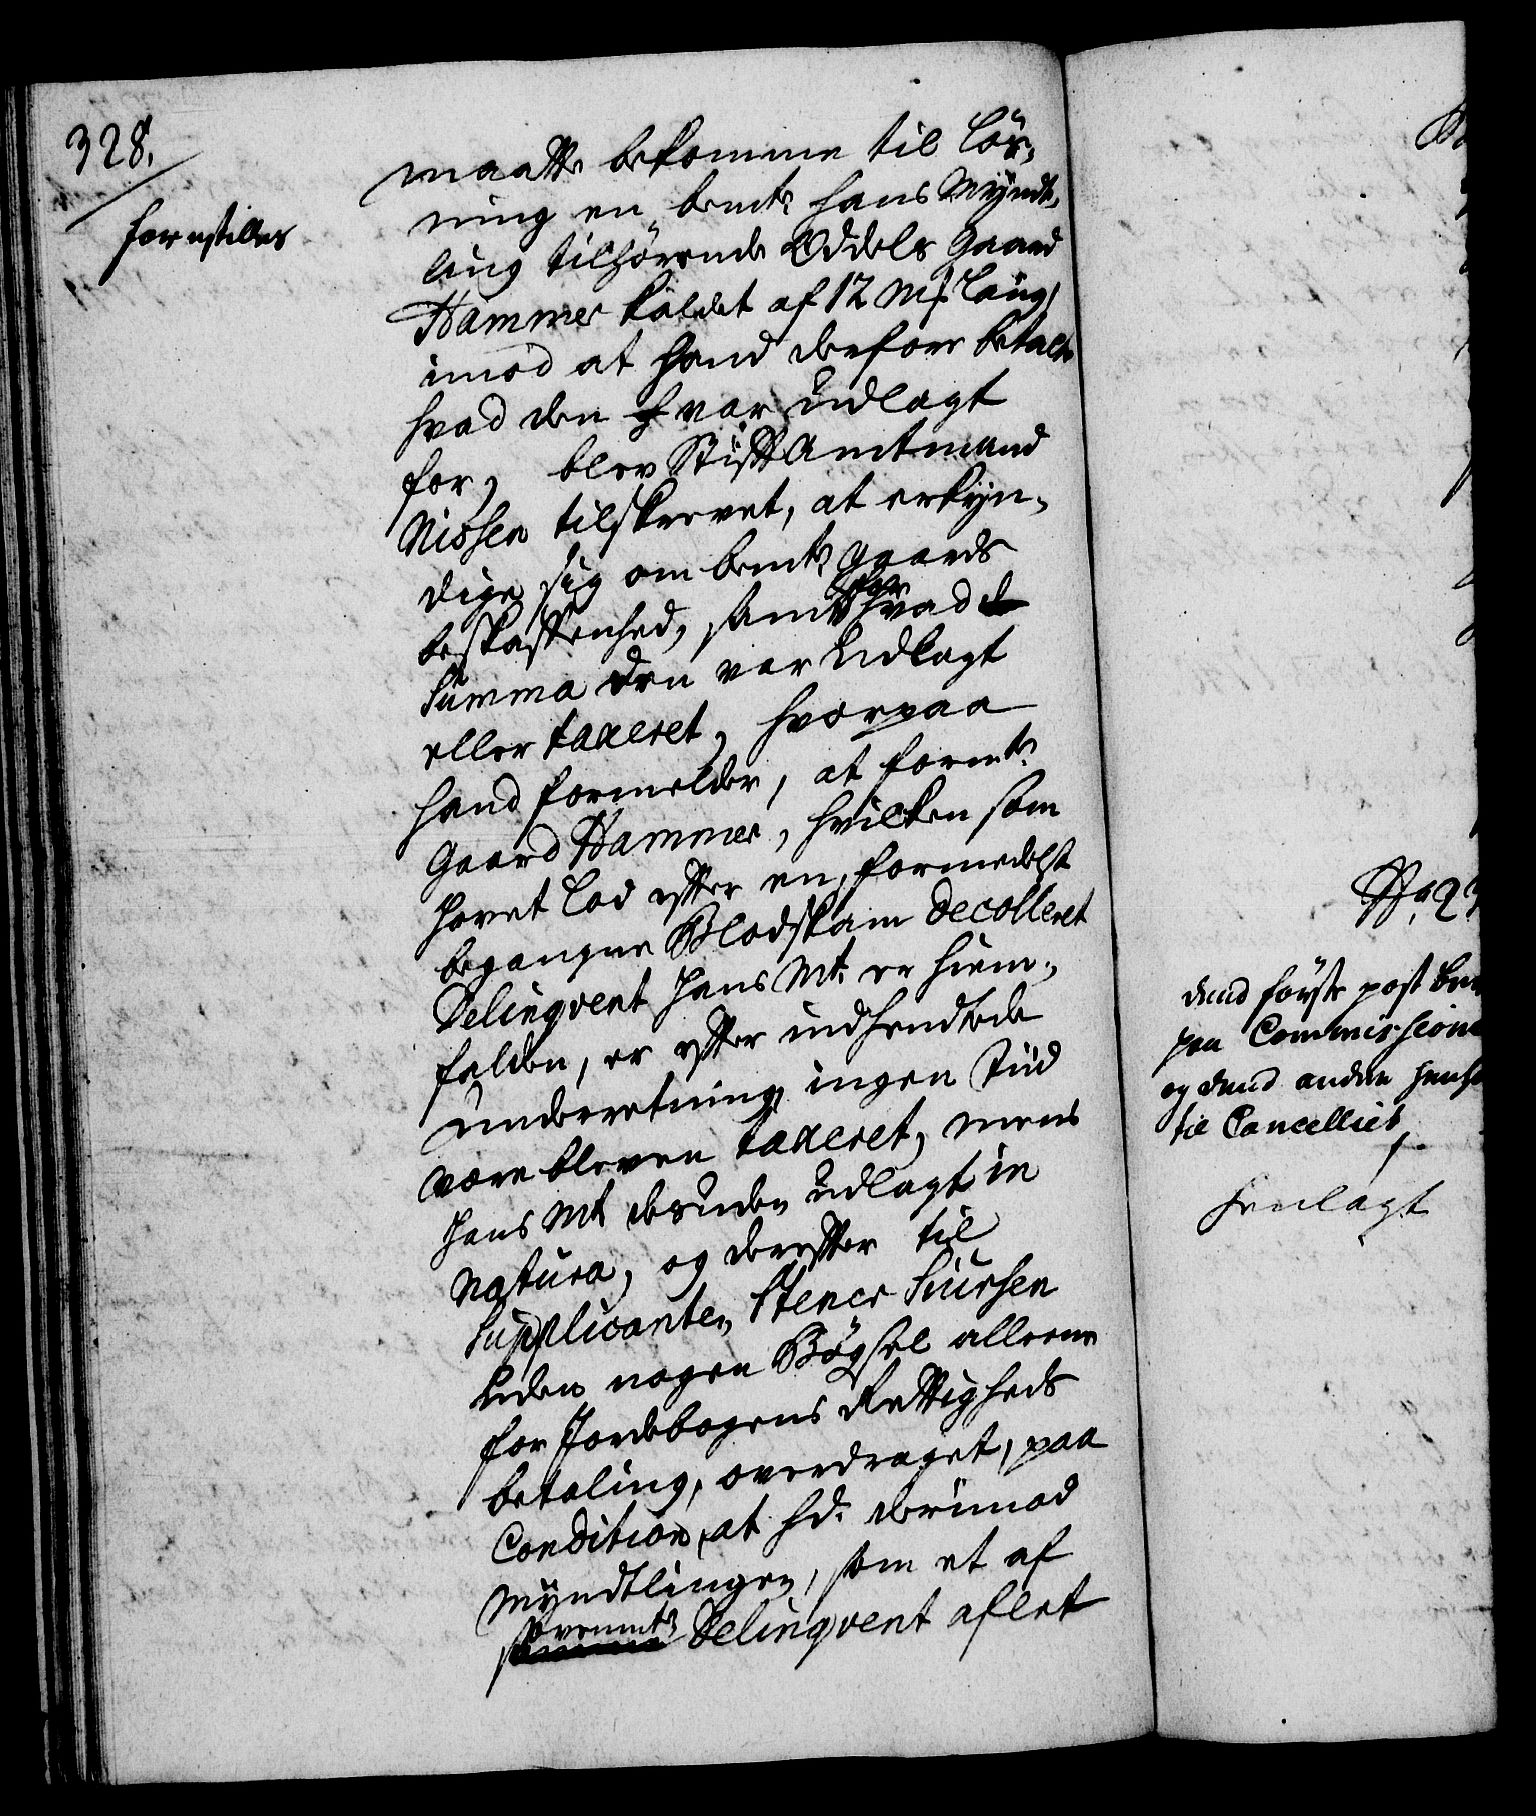 328.
forestilles
maatte bekomme til Løs-
ning en bemte hans Myndt-
ling tilhørende Oddels Gaard
Hammer kaldet af 12 Mk. Laug,
imod at hand derfore betalte
hvad den var udlagt
for, blev Stiftamtmand
Nissen tilskrevet, at erkyn-
dige sig om bemte Gaards
beskaffenhed, samt for hvad
Summa den var udlagt
eller taxeret, hvorpaa
hand formelder, at formte
Gaard Hammer, hvilken som
Hovet Lod efter en, formedelst
begangne Blodskam decolleret
Delinqvent Hans Mt. er hiem-
falden, er efter indhendtede
Underretning ingen Tiid
være bleven taxeret, mens
Hans Mt desuden udlagt in
natura, og derefter til
Supplicanten Stener Siursen
uden nogen Bøgsel alleene
for Jordebogens Rettigheds
betaling, overdraget, paa
Condition, at hd. derimod
Myndtlingen, som et af
ovennte Delinqvent aflet
dend første post
paa Commissione
og dend anden
til Cancelliet
henlagt